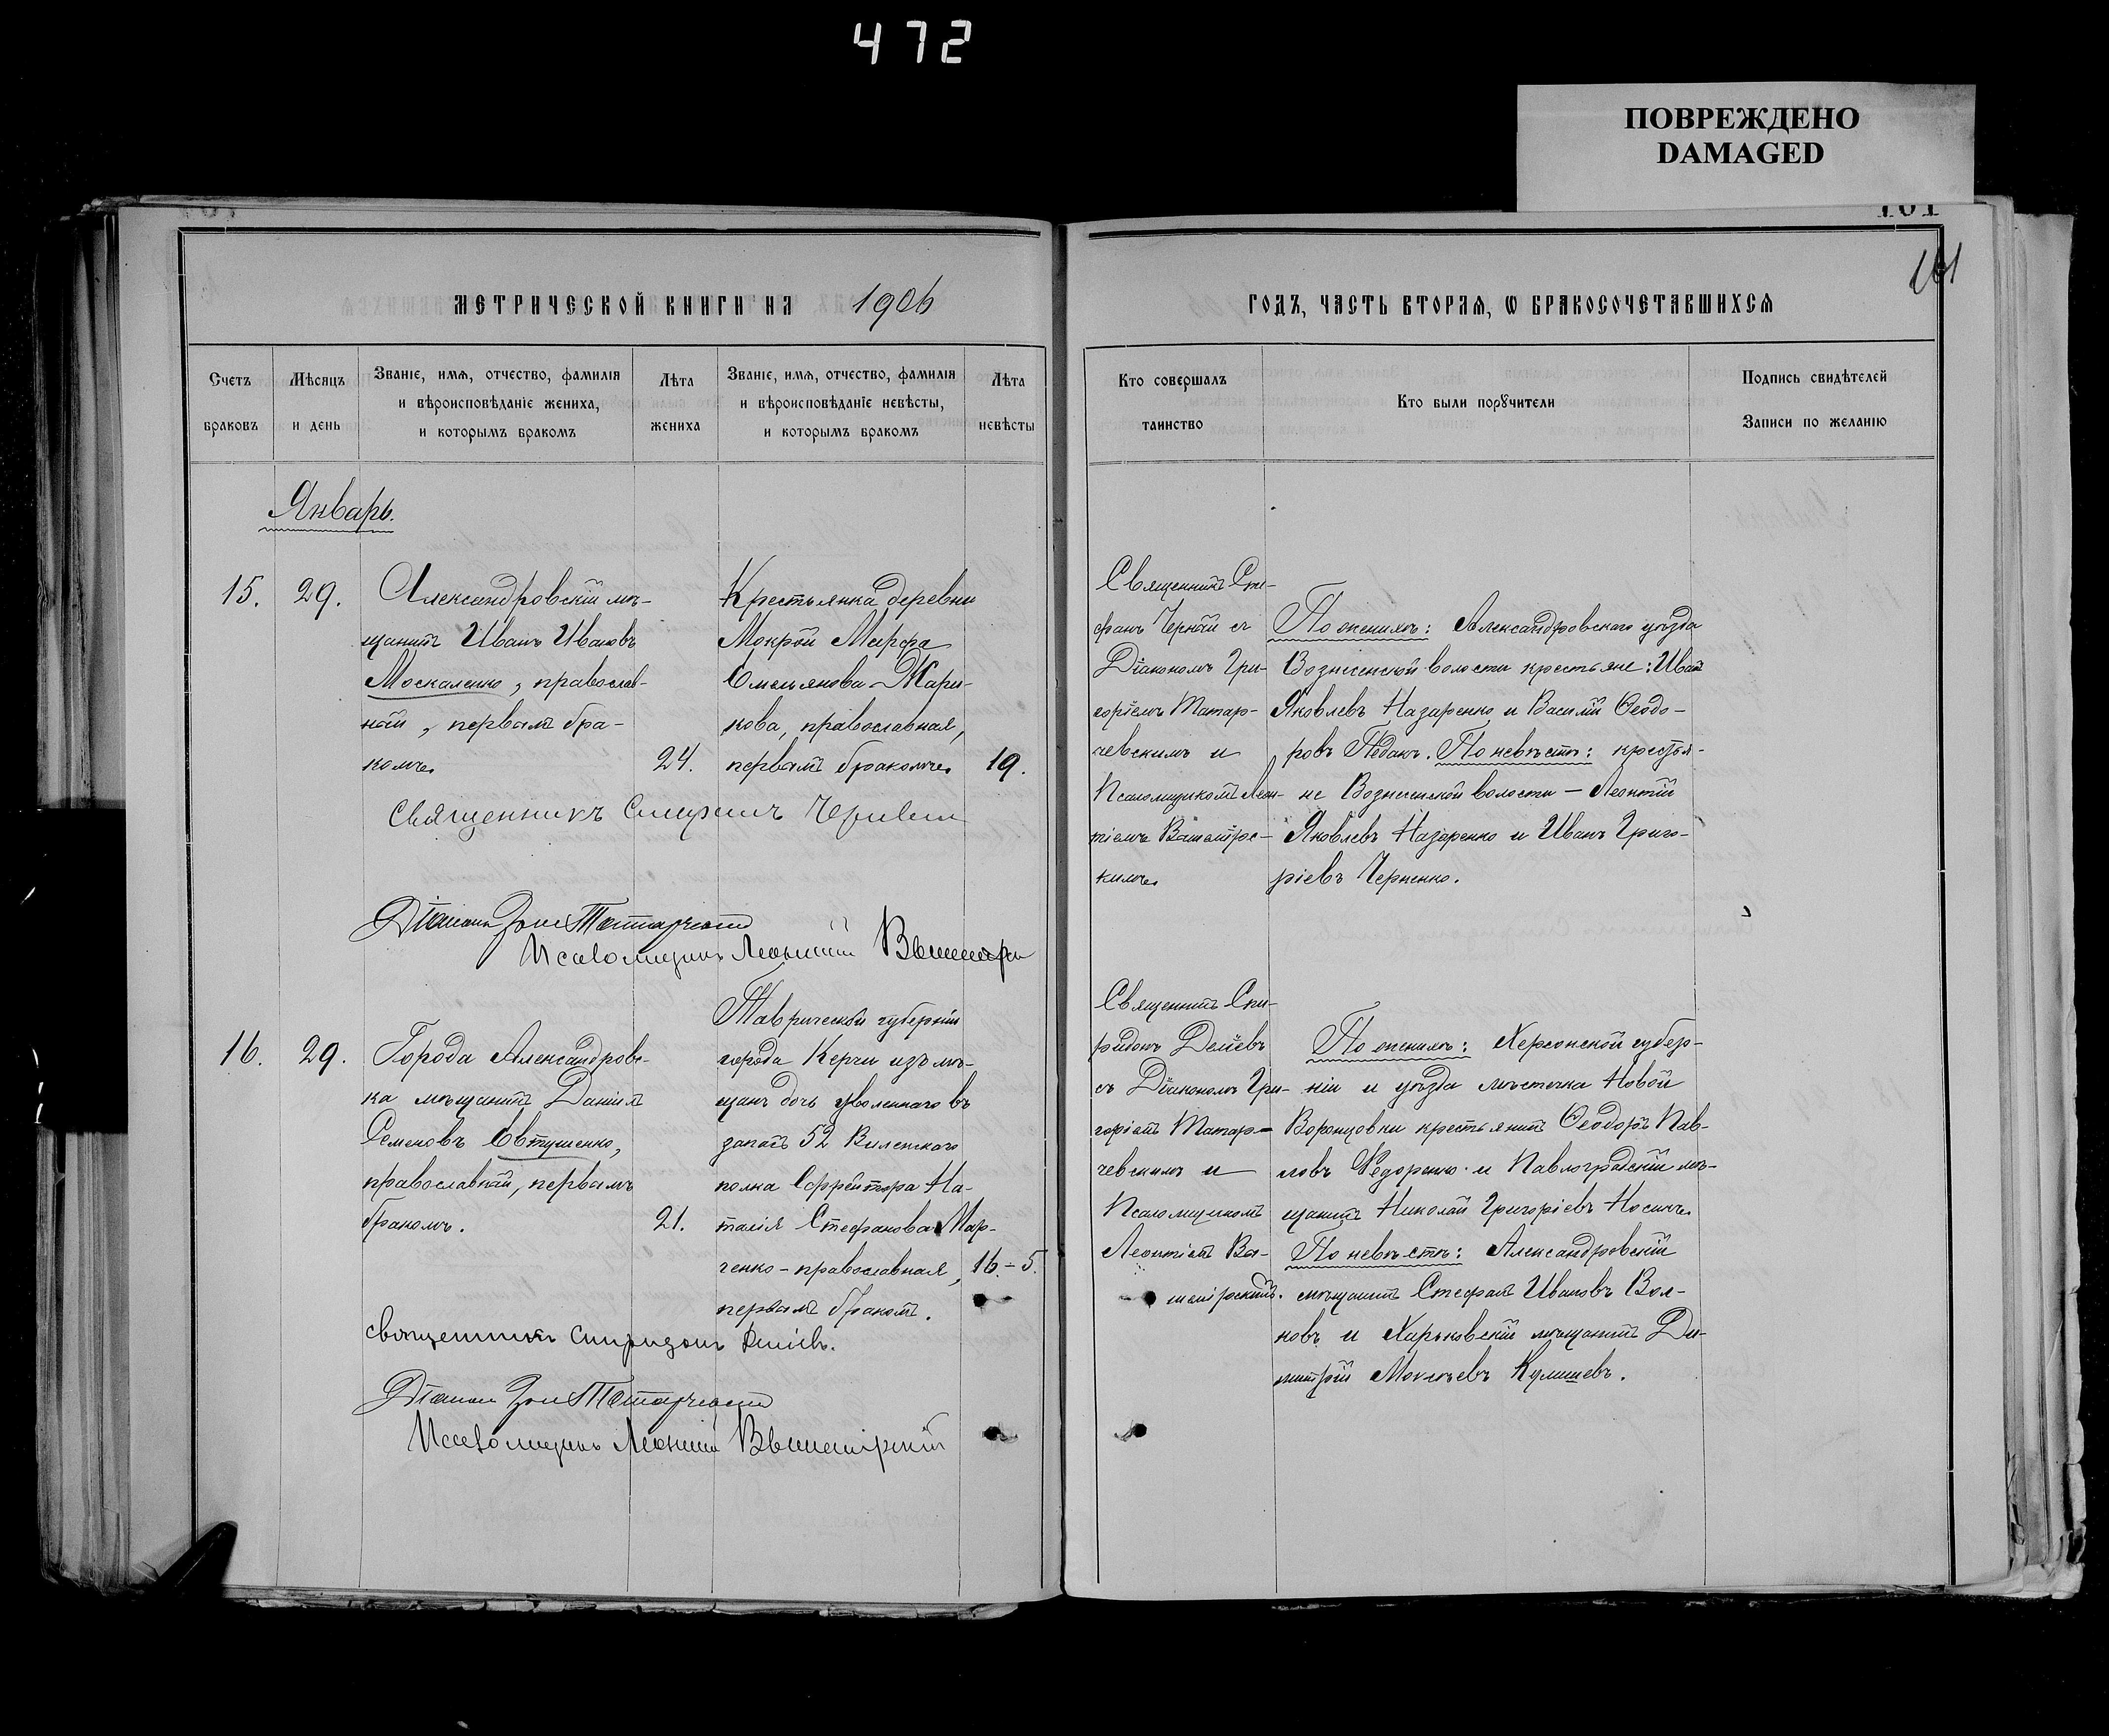 472
ПОВРЕЖДЕНО
DAMAGED
161
МЕТРИЧЕСКОЙ КНИГИ НА 1906
Счетъ браковъ
Мѣсяцъ и день
Званіе, имя, отчество, фамилія
и вѣроисповѣданіе жениха,
и которымъ бракомъ
Лѣта жениха
Званіе, имя, отчество, фамилія
и вѣроисповѣданіе невѣсты,
и которымъ бракомъ
Лѣта невѣсты
Январь.
15.
29.
Александровскій мѣ-
щанинъ Иванъ Ивановъ
Москаленко, православ-
ный, первымъ бра-
комъ
24.
Крестьянка деревни
Мокрой Марфа
Омельянова Жари-
кова, православная,
первымъ бракомъ
19.
Священникъ
Діаконъ
Псаломщикъ Леонтій
16.
29.
Города Александровс-
ка мѣщанинъ Даніилъ
Семеновъ Овтушенко,
православный, первымъ
бракомъ.
21.
Таврической губерніи
города Керчи изъ мѣ-
щанъ дочь уволеннаго въ
запасъ 52 Виленскаго
полка Ефрейтора На-
талія Стефанова Мар-
ченко - православная,
первымъ бракомъ.
16 - 5.
Священникъ Спиридонъ Деліевъ.
Діаконъ
Псаломщикъ Леонтій
ГОДЪ, ЧАСТЬ ВТОРАЯ, Ѡ БРАКОСОЧЕТАВШИХСЯ
161
Кто совершалъ
таинство
Кто были порꙋчители
Подпись свидѣтелей
Записи по желанію
Священникъ
Черный съ
Діакономъ Гри-
горіемъ Татар-
чевскимъ и
Псаломщикомъ Леон-
тіемъ
кимъ
По женихѣ: Александровскаго уѣзда
Вознесенской волости крестьяне: Иванъ
Яковлевъ Назаренко и Василій Ѳеодо-
ровъ Педанъ. По невѣстѣ: крестья-
не Вознесенской волости — Леонтій
Яковлевъ Назаренко и Иванъ Григо-
ріевъ Черненко.
Священникъ Спи-
ридонъ Деліевъ
съ Діакономъ Гри-
горіемъ Татар-
чевскимъ и
Псаломщикомъ
Леонтіемъ
По женихѣ: Херсонской губер-
ніи и уѣзда мѣстечка Новой
Воронцовки крестьянинъ Ѳеодоръ Пав-
ловъ Ѳедоренко и Павлоградскій мѣ-
щанинъ Николай Григоріевъ Носикъ
По невѣстѣ: Александровскій
мѣщанинъ Стефанъ Ивановъ Вол-
ковъ и Харьковскій мѣщанинъ Ди-
митрій Мокіевъ Кулишевъ.